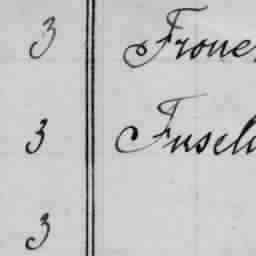 3 Frone
3 Fusel
3